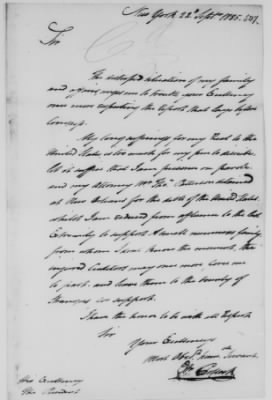 New York 22d Septr 1785. 507.
Sir
The distressed situation of my family
and affairs urges me to trouble your Excellency
once more respecting the Report that lays before
Congress.
My long sufferings for my Zeal to the
United States is too much for my pen to describe
let it suffice that I am prisoner on parole
and my Attorney Mr Thos Patterson detained
at New Orleans for the debts of the United States,
whilst I am reduced from affluence to the last
Extremity to support a small numerous family
from whom I now know the moment, the
injured Creditors may once more
to part, and leave them to the bounty of
Strangers for support.
I have the honor to be with all Respect
Sir
Your Excellency's
Most Obedt humle Servant
Olr Pollock
His Excellency
The President